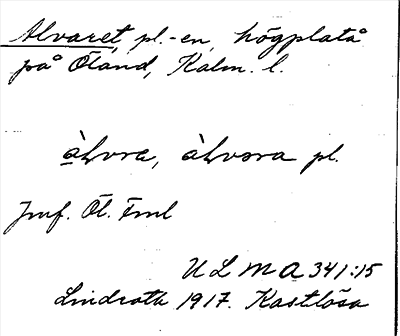 Alvaret, pl.-en, högplatå
på Öland, Kalm. l.
àLvra, àLvəra pl.
Jmf. Öl. Fml
ULMA 341:15
Lindroth 1917. Kastlösa